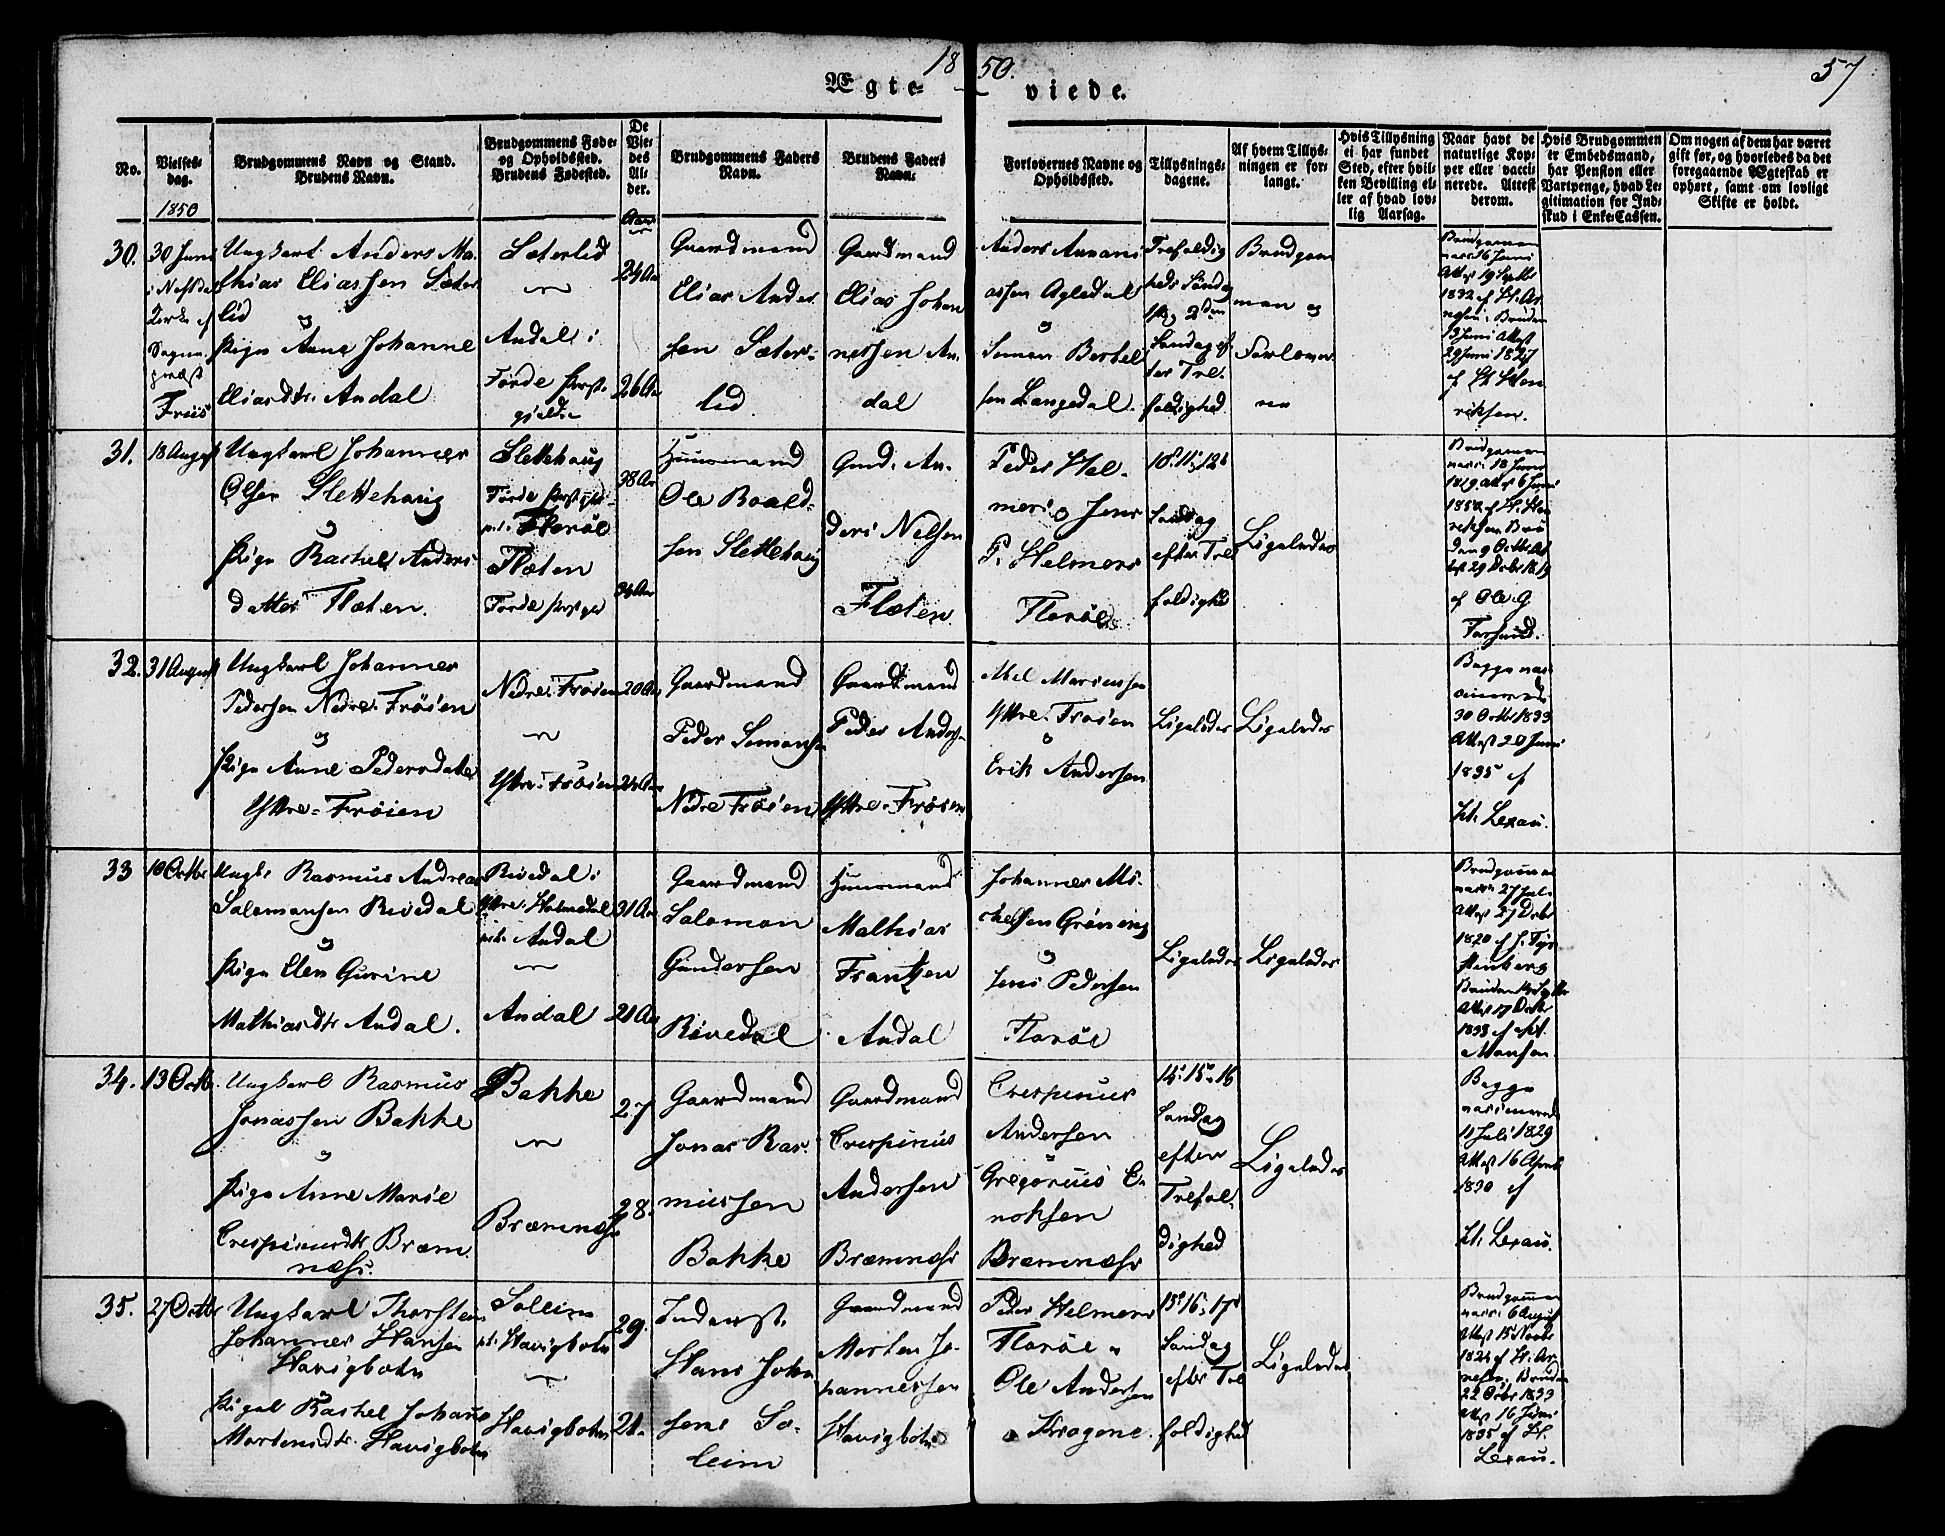 1850.
57
Ægteviede.
No.
Vielses-
dag.
1850
Brudgommens Navn og Stand.
Brudens Navn.
Brudgommens Føde-
og Opholdssted.
Brudens Fødested.
De
Vie-
des
Al-
der.
Aar
Brudgommens Faders
Navn.
Brudens Faders
Navn.
Forlovernes Navne og
Opholdssted.
Tillysnings-
dagene.
Af hvem Tillys-
ningen er for-
langt.
Hvis Tillysning
ei har fundet
Sted, efter hvil-
ken Bevilling el-
ler af hvad lov-
lig Aarsag.
Naar havt de
naturlige Kop-
per eller vacci-
nerede. Attest
derom.
Hvis Brudgommen
er Embedsmand,
har Pension eller
Vartpenge, hvad Le-
gitimation for Ind-
skud i Enke-Cassen.
Om nogen af dem har været
gift før, og hvorledes da det
foregaaende Ægteskab er
ophørt, samt om lovligt
Skifte er holdt.
30.
30 Juni
Kirke af
Sogne-
præst
Friis
Ungkarl Anders Ma-
thias Eliassen Sæter
lid
og
Pige Anne Johanne
Eliasdtr. Andal
Sæterlid
Andal i
Førde Præst-
gjeld
24 Aar
26 Aar
Gaardmand
Elias Ander
sen Sæter-
lid
Gaardmand
Elias Johan
nessen An-
dal
Anders Annani
assen Agledal
og
Simon Bertel
sen Langedal.
Trefoldig
heds Søndag
1ste og 2den
Søndag ef
ter Tre-
foldighed
Brudgom
men og
Forlover
ne
Brudgommen
vacc. 16 Juni
Attest 19 Septbr
1832 af H. Ar
nesen. Bruden
13 Juni Attest
29 Juni 1827
af Hen
riksen.
31.
18 August
Ungkarl Johannes
Olsen Slettehaug
og
Pige Rachel Anders
datter Flæten.
Slettehaug
Førde Præstgjeld
Florøe
Flæten
Førde Præstgjeld
38 Aar
Huusmand
Ole Roald-
sen Slettehaug
Gmd. An-
ders Nelsen
Flæten
Peder Hel-
mers og Jens
P. Helmers
Florøe
10. 11. 12te
Søndag
efter Tre
foldighed
Ligeledes
Brudgommen
vacc. 18 Juni
Bru
den 9 Octbr At
test 29 Decbr 1819
af Ole G
32.
31 August
Ungkarl Johannes
Pedersen Nedre-Frøien
og
Pige Anne Pedersdatter
Yttre-Frøien
Nedre-Frøien
Yttre-Frøien
20 Aar
24 Aar
Gaardmand
Peder Simonsen
Nedre Frøien
Gaardmand
Peder Andersen
Yttre-Frøien
Abel Mariussen
Yttre-Frøien
og
Erik Andersen
Ligeledes
Ligeledes
Begge vac-
cinerede
30 Octbr 1833
Attest 20 Juni
1835 af
Kl. Lexau.
33
10 Octbr
Ungk. Rasmus Andreas
Salomonsen Rivedal
og
Pige Elen Gurine
Mathiasdtr Andal.
Rivedal i
Yttre-Holmedal
Andal
Andal
31 Aar
21 Aar
Gaardmand
Salomon
Gundersen
Rivedal
Huusmand
Mathias
Frantzen
Andal
Johannes Mi-
chelsen Grøning
og
Jens Pedersen
Florøe
Ligeledes
Ligeledes
Brudgommen
vacc. 27 Juli
Attest 27 Decbr
1820 af
Bruden
Attest 17 Octbr
1833 af
Monsen
34.
13 Octbr.
Ungkarl Rasmus
Jonassen Bakke
og
Pige Anne Marie
Crespinusdtr Bræm
næs.
Bakke
Bræmnæs
27
28.
Gaardmand
Jonas Ras-
mussen
Bakke
Gaardmand
Crespinus
Andersen
Bræmnæs
Crespinus
Andersen
Gregorius E-
noksen
Bræmnæs
14. 15. 16
Søndag
efter
Trefol-
dighed
Ligeledes
Begge
vaccinerede
11 Juli 1829
Attest 16 April
1830 af
Kl. Lexau.
35.
27 Octbr
Ungkarl Thorstein
Johannes Hansen
Havigbotn
og
Pige Rachel Johanne
Mortensdtr. Havigbotn
Soleim
pt. Havigbotn
Havigbotn
29.
21.
Inderst
Hans Johan
sens So-
leim
Gaardmand
Morten Jo-
hannessen
Havigbotn
Peder Helmers
Florøe og
Ole Andersen
Krogene.
15. 16. 17de
Søndag
efter Tre
foldighed
Ligeledes
Brudgommen
vacc. 6 August
Attest 15 Novbr
1824 af H. Ar
nesen. Bruden
22 Octbr 1833
Attest 16 Juni
1835 af Kl.
Lexau.